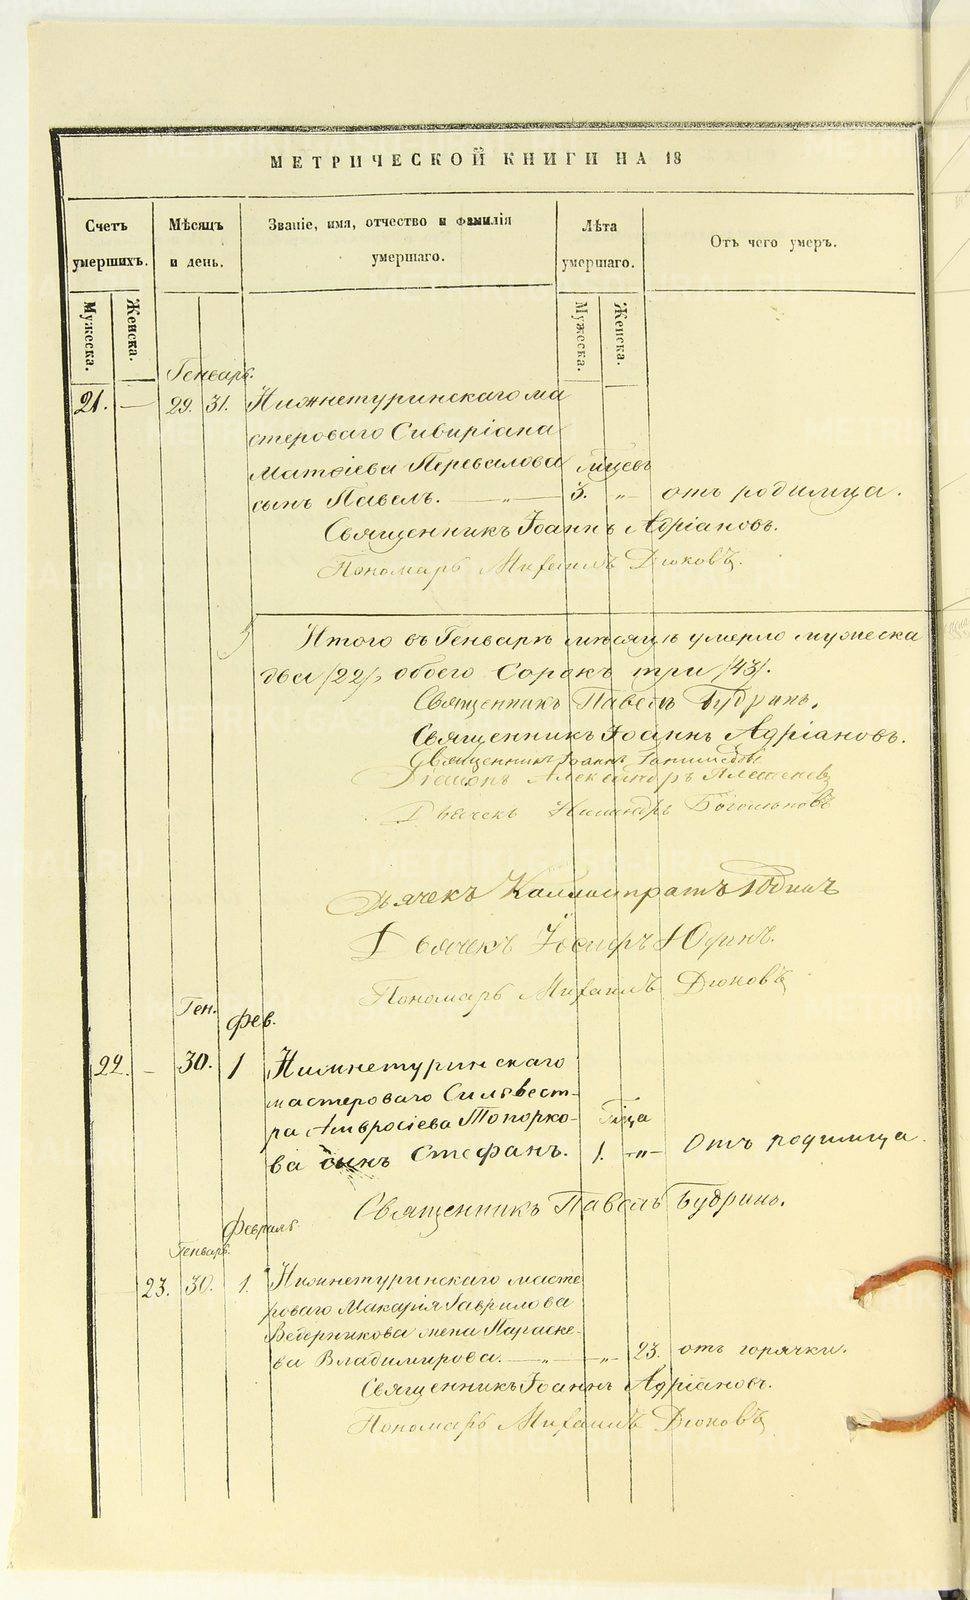 МЕТРИЧЕСКОЙ КНИГИ НА 18
Счетъ умершихъ.
Мѣсяцъ и день.
Званіе, имя, отчество и фамилія умершаго.
Лѣта умершаго.
Отъ чего умеръ.
Мужеска.
Женска.
Мужеска.
Женска.
Генварь.
21. — 29. 31. Нижнетуринскаго ма
стероваго Сивиріана
Матѳіева Перевалова
сынъ Павелъ. — „ — 3. „ отъ родимца.
Священникъ Іоаннъ Адріановъ.
Пономарь Михаилъ Дюковъ.
Итого въ Генварѣ мѣсяцѣ умерло мужеска
два /22/, обоего Сорокъ три /43/.
Священникъ Павелъ Будринъ.
Священникъ Іоаннъ Адріановъ.
Священникъ Іоаннъ
Діаконъ Александръ
Дьячекъ
Дьячекъ Каллистратъ Юдинъ
Дьячекъ Іосифъ Юдинъ.
Пономарь Михаилъ Дюковъ
Ген. Фев.
22. — 30. 1 Нижнетуринскаго
мастероваго Сильвест-
ра Амвросіева Топорко-
ва сынъ Стефанъ. 1. —„— Отъ родимца.
Священникъ Павелъ Будринъ.
Февраль
Генварь.
23. 30. 1. Нижнетуринскаго масте
роваго Макарія Гаврилова
Ведерникова жена Параске-
ва Владимирова. — „ — „ — 23. отъ горячки.
Священникъ Іоаннъ Адріановъ.
Пономарь Михаилъ Дюковъ
METRIKI.GASO-URAL.RU